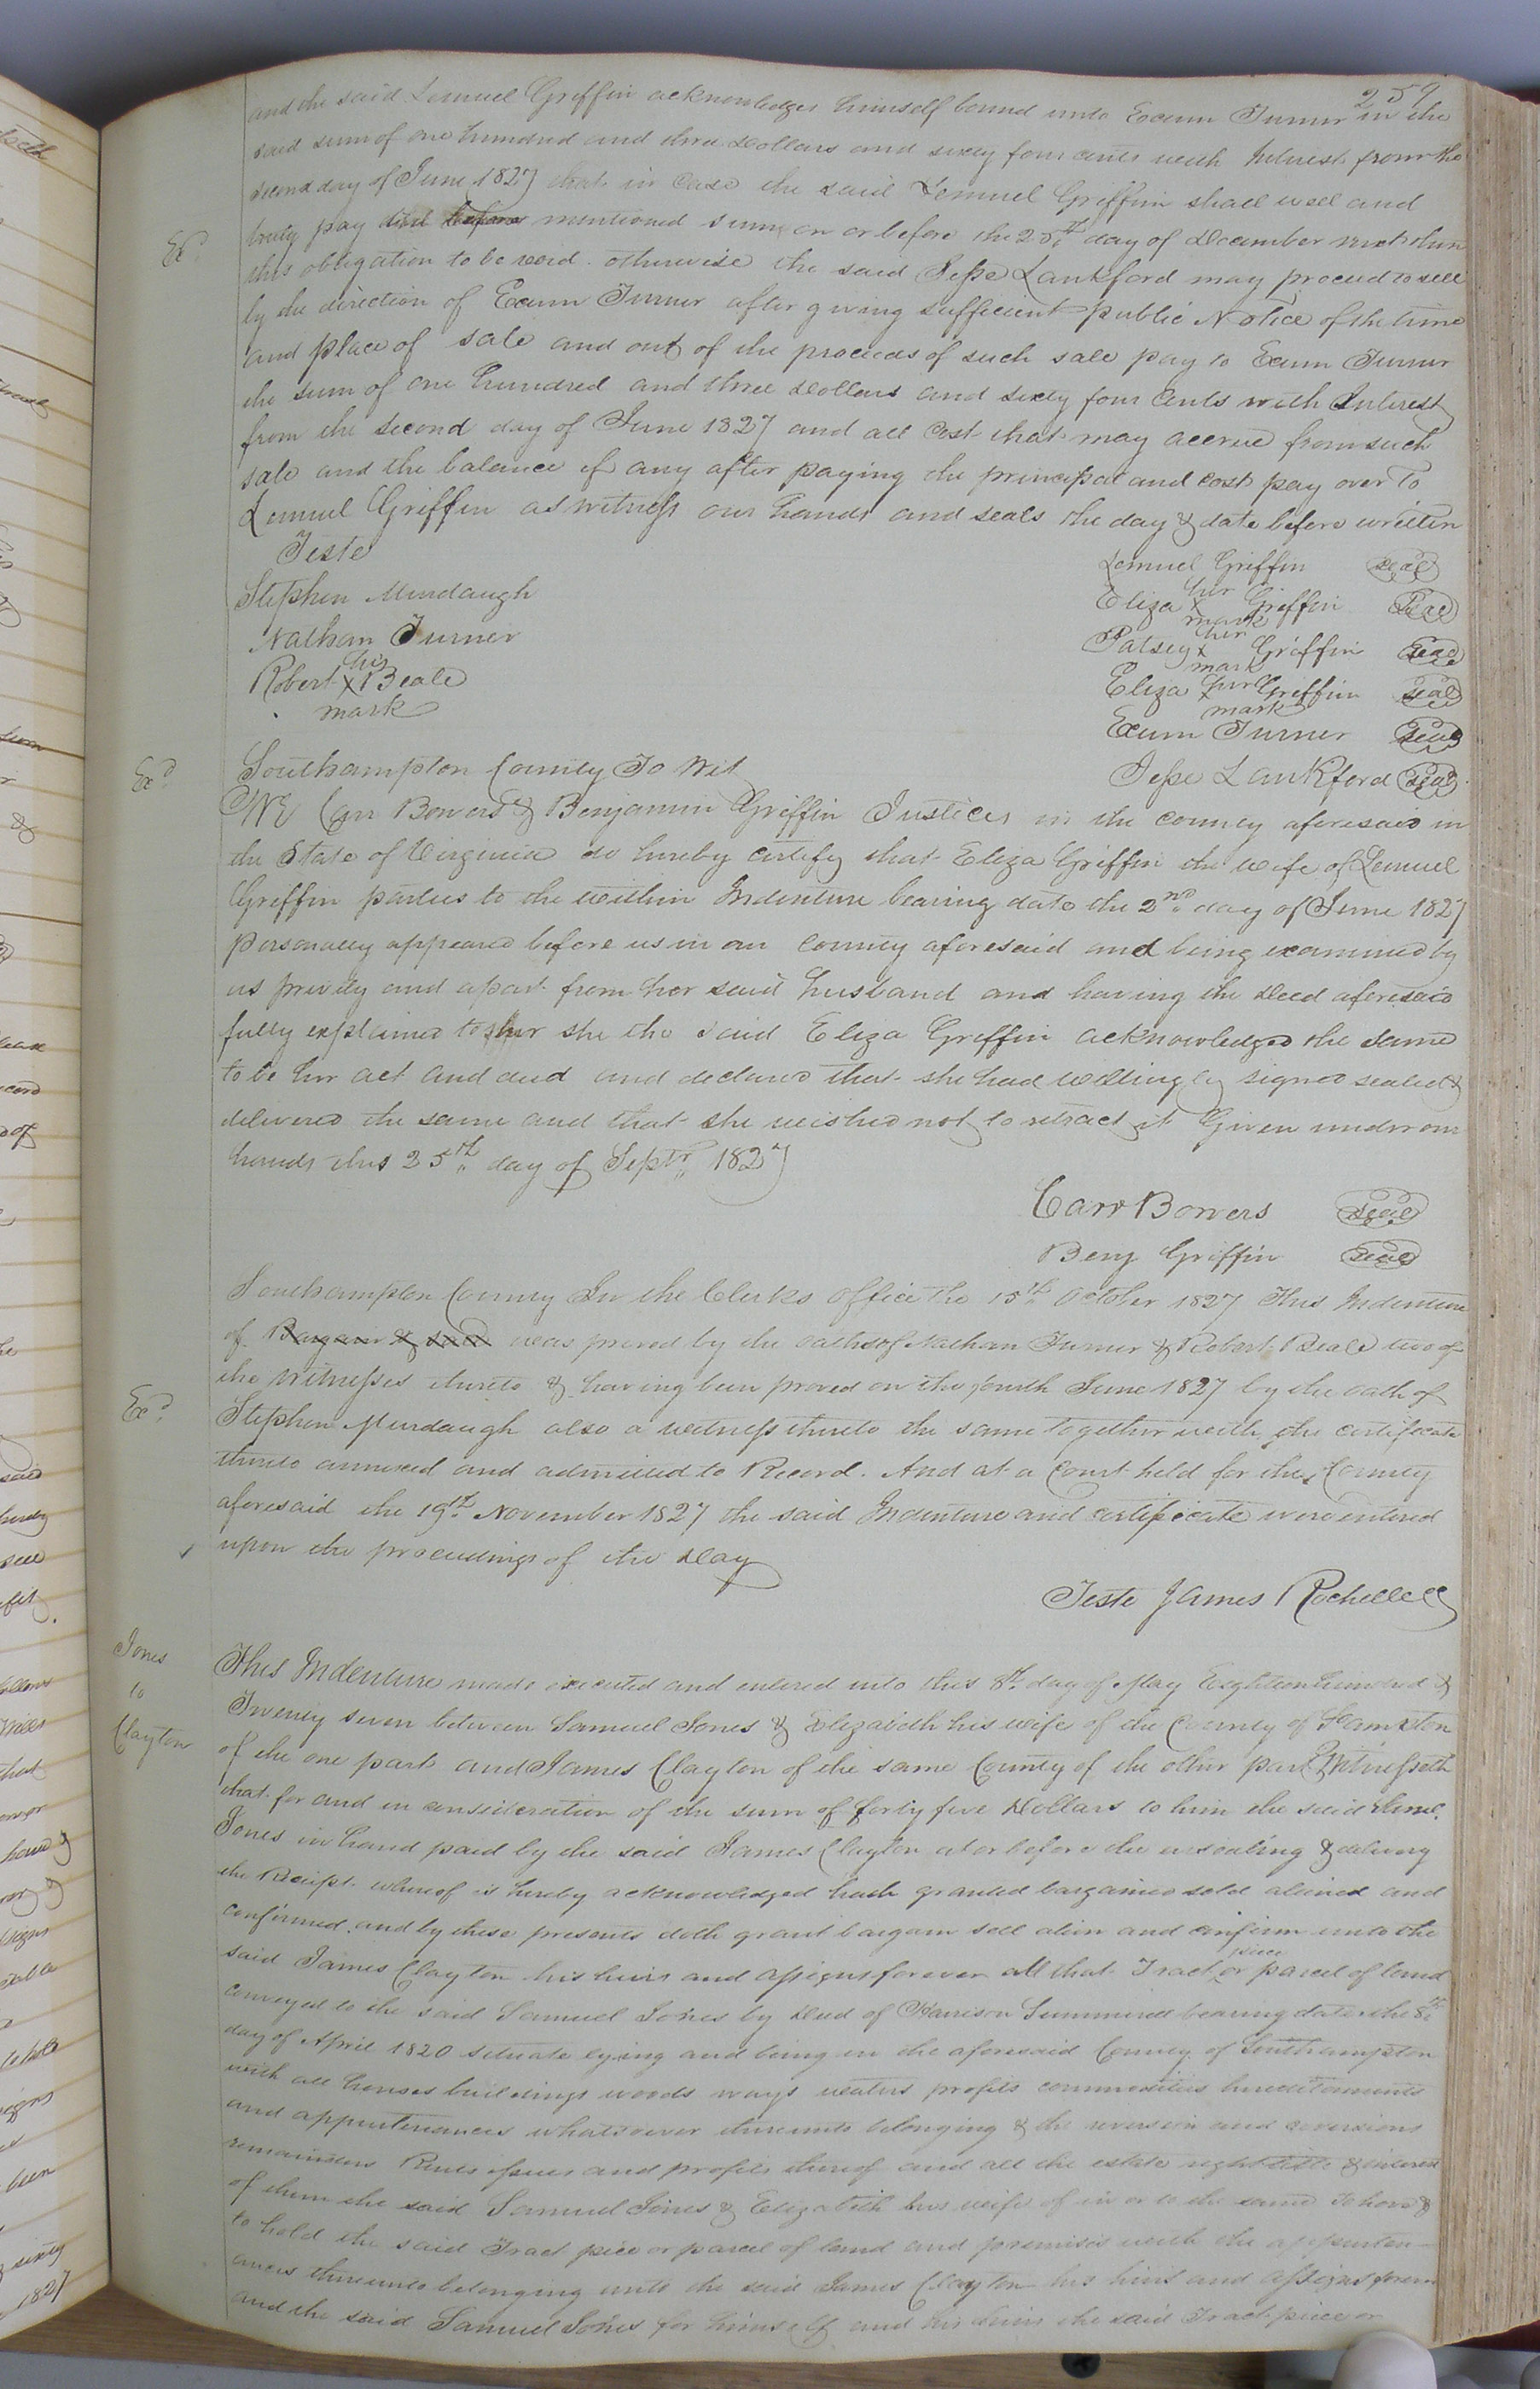 259
and the said Lemuel Griffin acknowledges himself bound unto Exum Turner in the
said sum of one hundred and three Dollars and sixty four cents with Interest from the
second day of June 1827 that in case the said Lemuel Griffin shall well and
truly pay the before mentioned sum on or before the 25th day of December next then
Exd.
this obligation to be void otherwise the said Jesse Lankford may proceed to sell
by the direction of Exum Turner after giving sufficient public Notice of the time
and place of sale and out of the proceeds of such sale pay to Exum Turner
the sum of one hundred and three Dollars and sixty four Cents with Interest
from the second day of June 1827 and all Cost that may accrue from such
sale and the balance if any after paying the principal and cost pay over To
Lemuel Griffin as witness our hands and seals the day & date before written
Teste
Lemuel Griffin seal
Stephen Murdaugh
Eliza her x mark Griffin seal
Nathan Turner
Patsey her x mark Griffin seal
Robert his x mark Beale
Eliza her x mark Griffin seal
Exum Turner seal
Exd.
Southampton County To Wit
Jesse Lankford seal
We Carr Bowers & Benjamin Griffin Justices in the county aforesaid in
the State of Virginia do hereby certify that Eliza Griffin the wife of Lemuel
Griffin parties to the within Indenture bearing date the 2nd day of June 1827
personally appeared before us in our county aforesaid and being examined by
us privily and apart from her said husband and having the deed aforesaid
fully explained to her she the said Eliza Griffin acknowledged the same
to be her act and deed and declared that she had willingly signed sealed &
delivered the same and that she wished not to retract it Given under our
hands this 25th day of Septr. 1827
Carr Bowers seal
Benj Griffin seal
Southampton County In the Clerks office the 15th October 1827 This Indenture
of Bargain & said was proved by the oaths of Nathan Turner & Robert Beale two of
the witnesses thereto & having been proved on the fourth June 1827 by the oath of
Exd.
Stephen Murdaugh also a witness thereto the same together with the certificate
thereto annexed and admitted to Record. And at a Court held for the County
aforesaid the 19th November 1827 the said Indenture and certificate were entered
upon the proceedings of the day
Teste James Rochelle
Jones
to
Clayton
This Indenture made executed and entered into this 8th day of May Eighteen hundred &
Twenty seven between Samuel Jones & Elizabeth his wife of the County of
of the one part and James Clayton of the same County of the other part Witnesseth
that for and in consideration of the sum of forty five Dollars to him the said Saml.
Jones in hand paid by the said James Clayton at or before the ensealing & delivery
the Receipt whereof is hereby acknowledged hath granted bargained sold aliened and
confirmed and by these presents doth grant bargain sell alien and confirm unto the
said James Clayton his heirs and assigns forever all that Tract piece or parcel of land
conveyed to the said Samuel Jones by deed of Harrison Summerell bearing date the 8th
day of April 1820 situate lying and being in the aforesaid County of Southampton
with all houses buildings woods ways waters profits commodities hereditaments
and appurtenances whatsoever thereunto belonging & the reversion and reversions
remainders Rents issues and profits thereof and all the estate right title & interest
of them the said Samuel Jones & Elizabeth his wife of in or to the same To have &
to hold the said Tract piece or parcel of land and premises with the appurten-
ances thereunto belonging unto the said James Clayton his heirs and assigns forever
and the said Samuel Jones for himself and his heirs the said Tract piece or